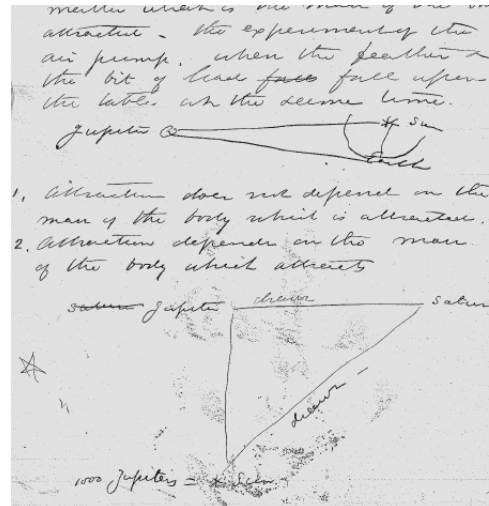 matter which is the mass of the
attracted - the experiment of the
air pump. when the feather &
the bit of lead fall fall upon
the table at the same time.
Jupiter Sun
Earth
1. Attraction does not depend on the
mass of the body which is attracted.
2. Attraction depends on the mass
of the body which attracts
Saturn Jupiter draws Saturn
draws
1000 Jupiters = x Sun